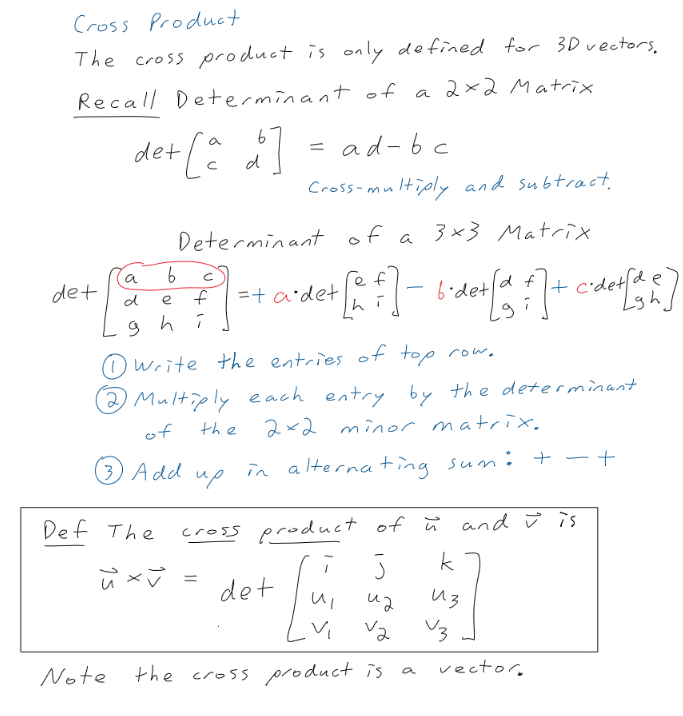 Cross Product
The cross product is only defined for 3D vectors.
Recall Determinant of a 2×2 Matrix
det [a b; c d] = ad - bc
Cross-multiply and subtract.
Determinant of a 3×3 Matrix
det [a b c; d e f; g h i] = + a·det [e f; h i] - b·det [d f; g i] + c·det [d e; g h]
① Write the entries of top row.
② Multiply each entry by the determinant
of the 2×2 minor matrix.
③ Add up in alternating sum: + - +
Def The cross product of u⃗ and v⃗ is
u⃗ × v⃗ = det [i j k; u₁ u₂ u₃; v₁ v₂ v₃]
Note the cross product is a vector.